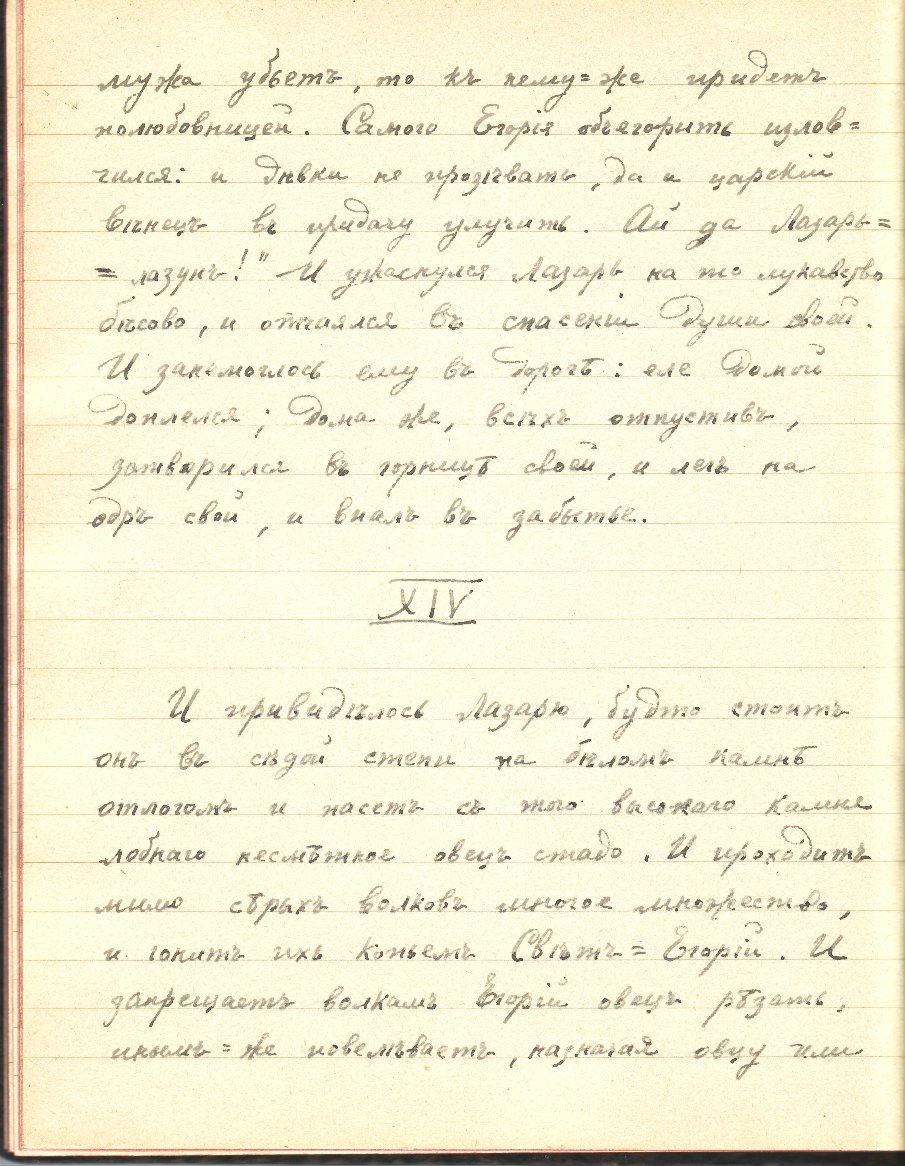 мужа убьетъ, то къ нему=же придетъ
полюбовницей. Самого Егорія объегорить излов=
чился: и дѣвки не прозѣвать, да и царскій
вѣнецъ въ придачу улучить. Ай да Лазарь=
=лазунъ!" И ужаснулся Лазарь на то лукавство
бѣсово, и отчаялся въ спасеніи души своей.
И занемоглось ему въ дорогѣ: еле домой
доплелся; дома же, всѣхъ отпустивъ,
затворился въ горницѣ своей, и легъ на
одръ свой, и впалъ въ забытье.
XIV
И привидѣлось Лазарю, будто стоитъ
онъ въ сѣдой степи на бѣломъ камнѣ
отлогомъ и пасетъ съ того высокаго камня
лобнаго несмѣтное овецъ стадо. И проходитъ
мимо сѣрыхъ волковъ многое множество,
и гонитъ ихъ копьемъ Свѣтъ=Егорій. И
запрещаетъ волкамъ Егорій овецъ рѣзать,
инымъ=же повелѣваетъ, назначая овцу или